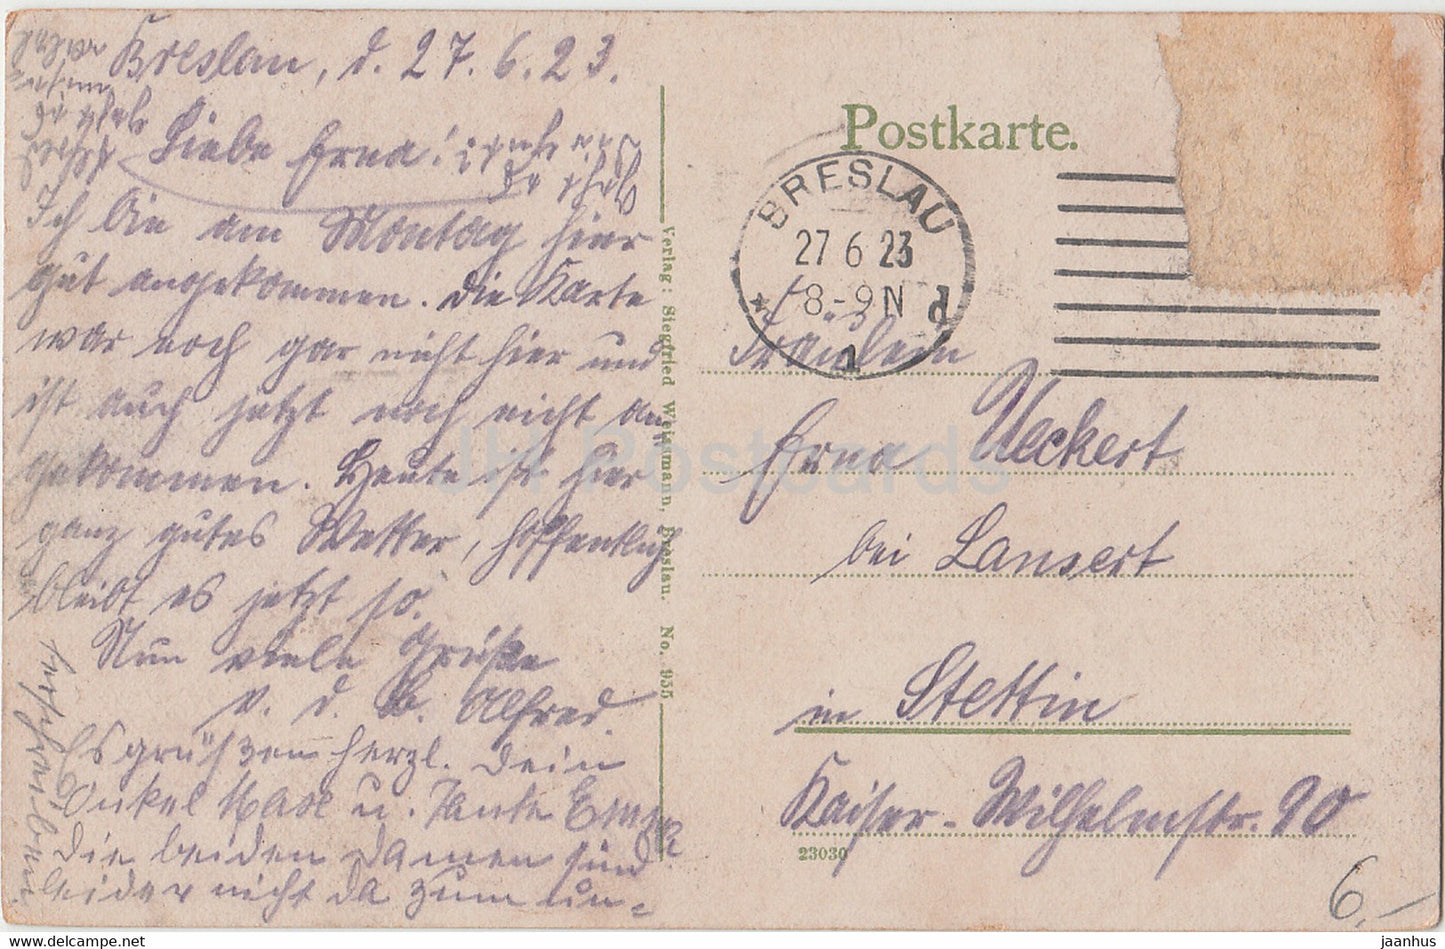 Breslau, d. 27. 6. 23.
Liebe Erna!
Ich bin am Montag hier
gut angekommen. Die Karte
war noch gar nicht hier und
ist auch jetzt noch nicht an
gekommen. Heute ist hier
ganz gutes Wetter, hoffentlich
bleibt es jetzt so.
Nun viele Grüße
v. d. Alfred.
Es grüßen herzl. Dein
Onkel u. Tante
die beiden Damen sind
leider nicht da zum un-
terschreiben
Verlag: Siegfried Weissmann, Breslau. No. 935
Postkarte.
BRESLAU
27 6 23
8-9 N
* 1 d
Fräulein
Erna Ueckert
bei Lansert
in Stettin
Kaiser-Wilhelmstr. 90
23030
6,-
JH Postcards
jaanhus © www.delcampe.net